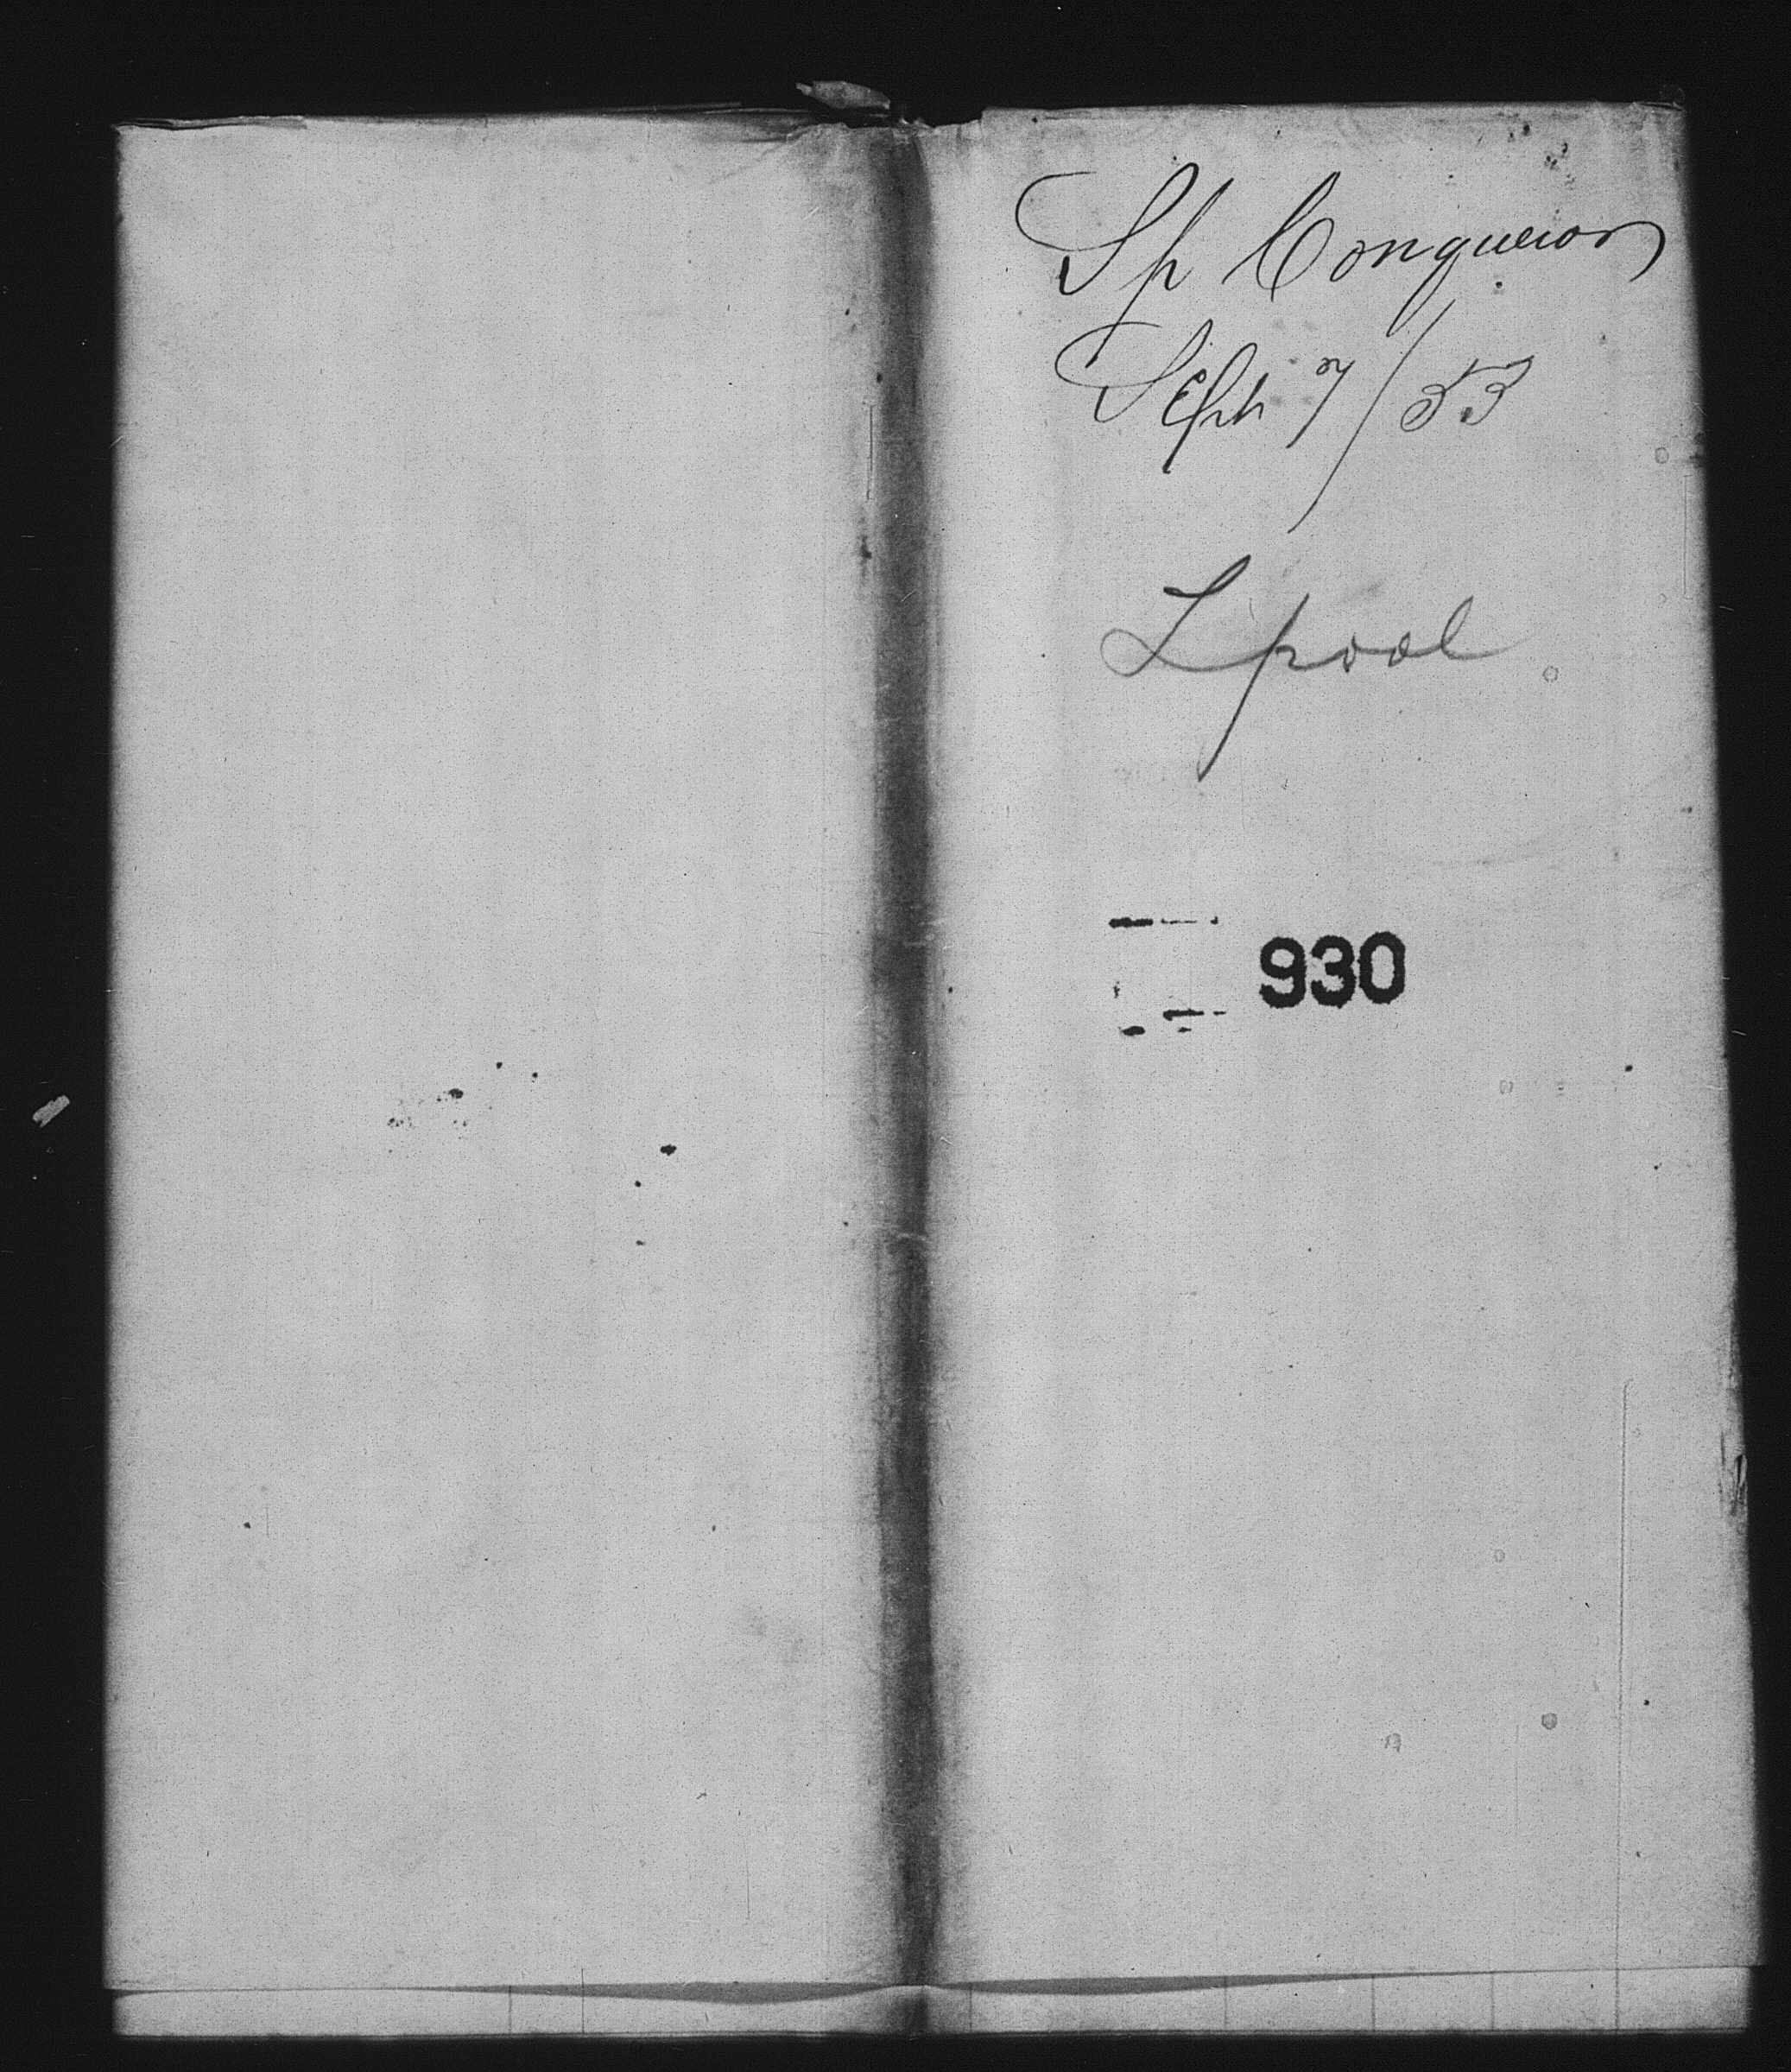 Sp Conqueror
Sept 7/53
Lpool
930